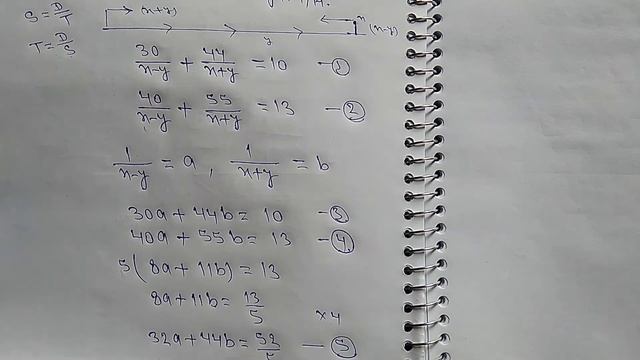 S = D/T
(x+y)
x
(x-y)
T = D/S
y
30/(x-y) + 44/(x+y) = 10 — ①
40/(x-y) + 55/(x+y) = 13 — ②
1/(x-y) = a , 1/(x+y) = b
30a + 44b = 10 — ③
40a + 55b = 13 — ④
5(8a + 11b) = 13
8a + 11b = 13/5 ×4
32a + 44b = 52/5 — ⑤